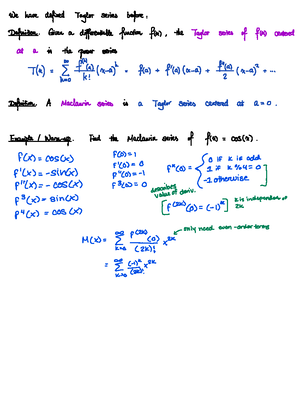 We have defined Taylor series before.
Definition. Given a differentiable function f(x), the Taylor series of f(x) centered
at a is the power series
T(x) = ∞ Σ k=0 f^(k)(a)/k! (x-a)^k = f(a) + f'(a)(x-a) + f''(a)/2 (x-a)^2 + ...
Definition. A Maclaurin series is a Taylor series centered at a = 0.
Example / Warm-up. Find the Maclaurin series of f(x) = cos(x).
f(x) = cos(x)
f'(x) = -sin(x)
f''(x) = -cos(x)
f^3(x) = sin(x)
f^4(x) = cos(x)
f(0) = 1
f'(0) = 0
f''(0) = -1
f^3(0) = 0
f^k(0) = { 0 if k is odd
1 if k % 4 = 0
-1 otherwise
describes
value of deriv.
[f^(2k)(0) = (-1)^k]
k is independent of
2k
only need even-order terms
M(x) = ∞ Σ k=0 f^(2k)(0)/(2k)! x^2k
= ∞ Σ k=0 (-1)^k/(2k)! x^2k